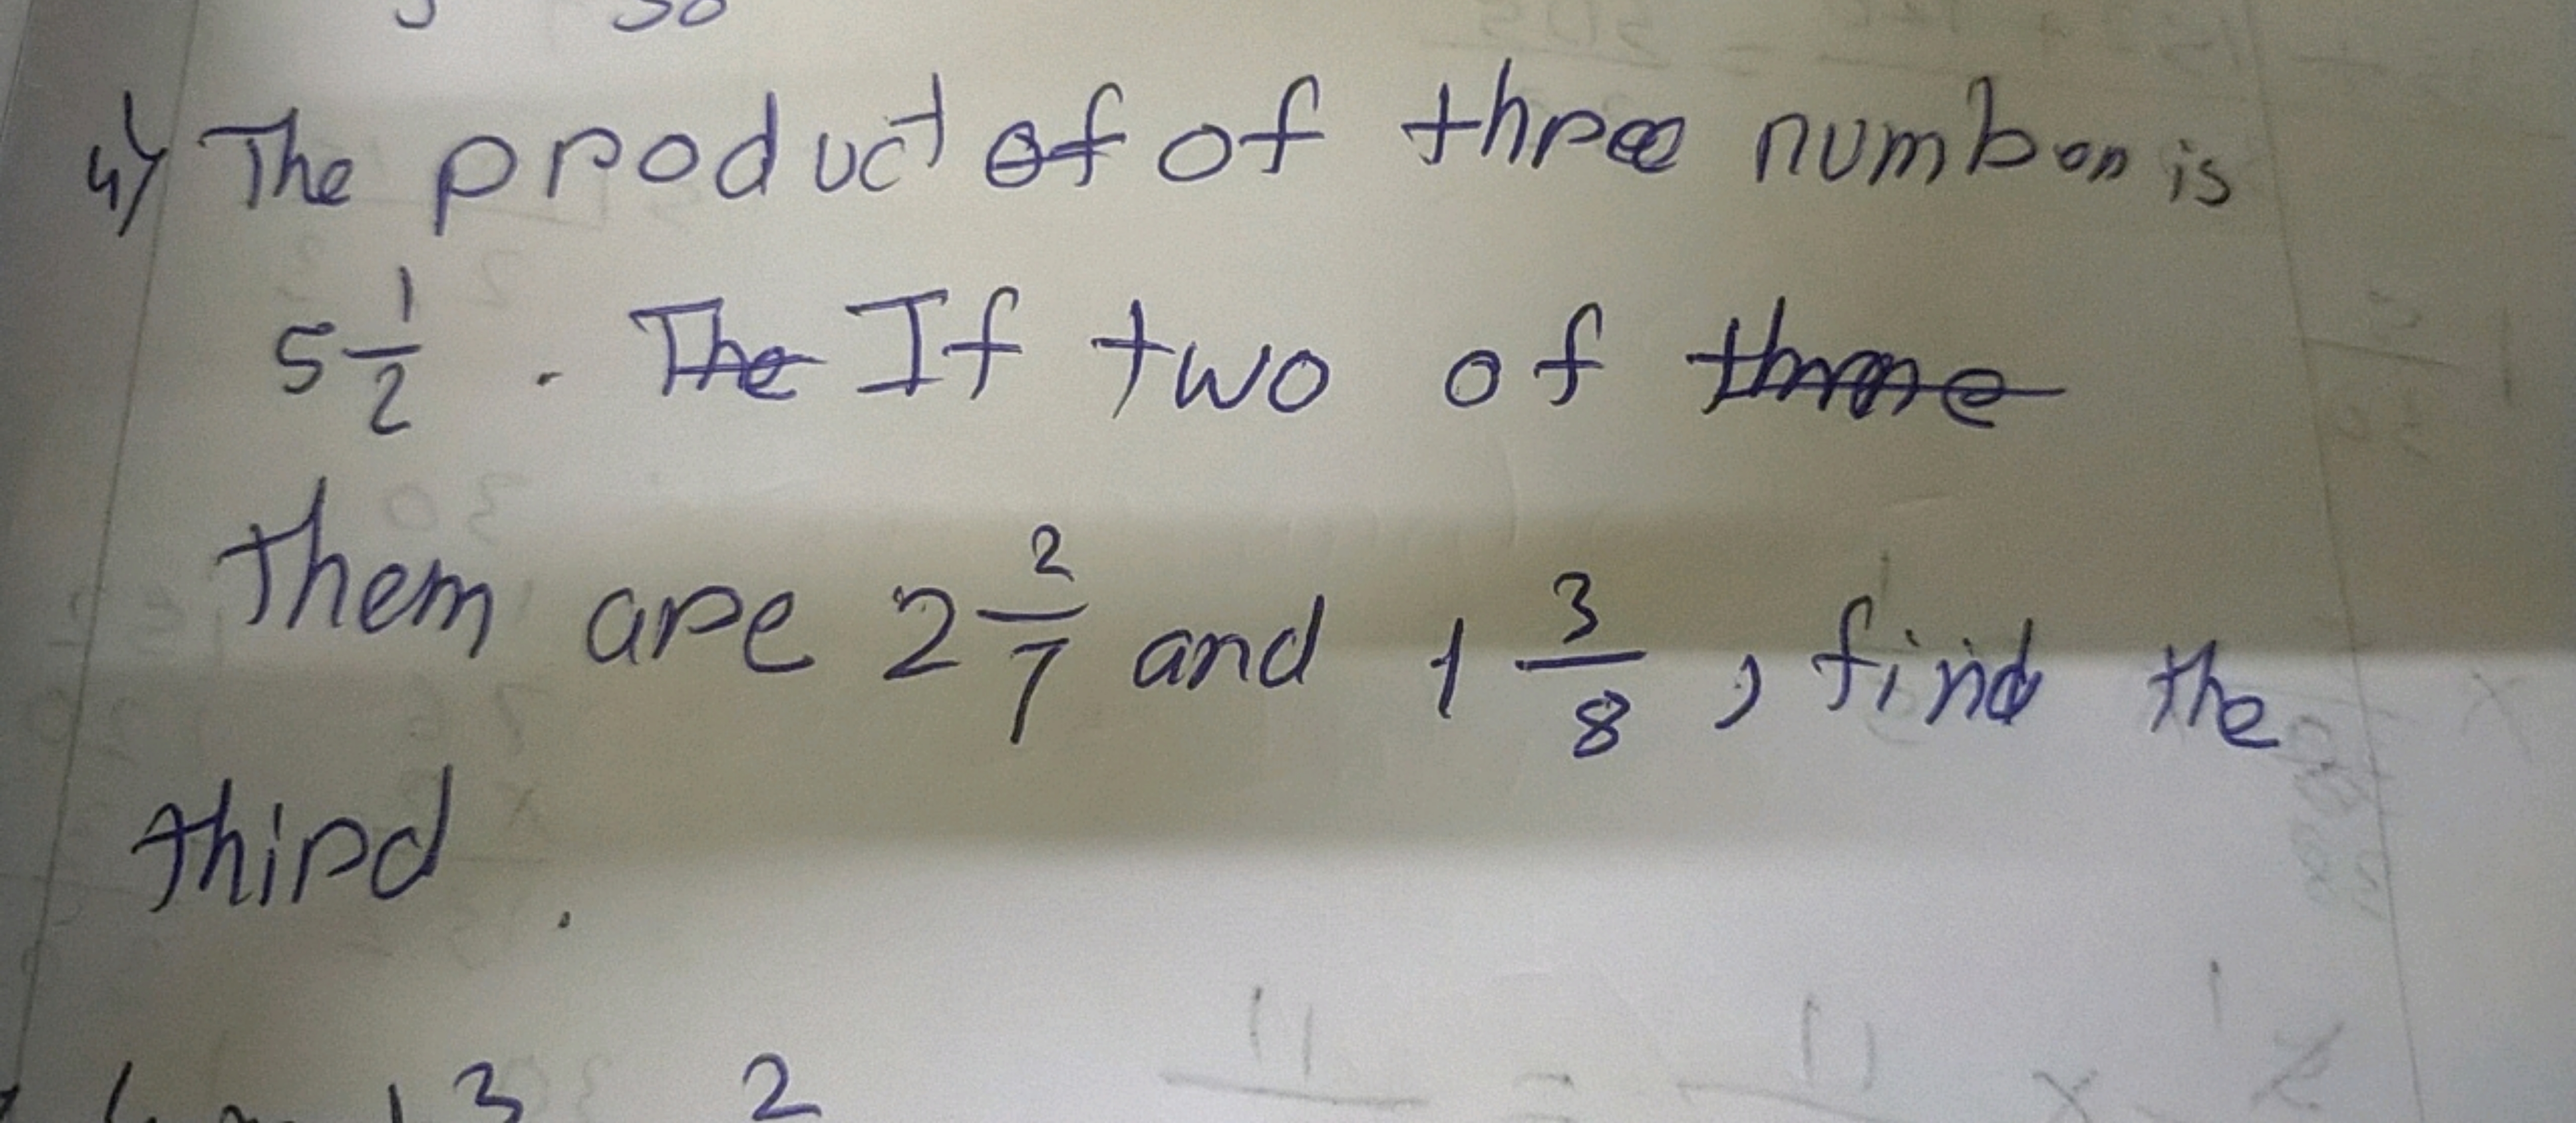 4) The product of of three number is
5 1/2 . The If two of
Them are 2 2/7 and 1 3/8 , find the
third .
3 2